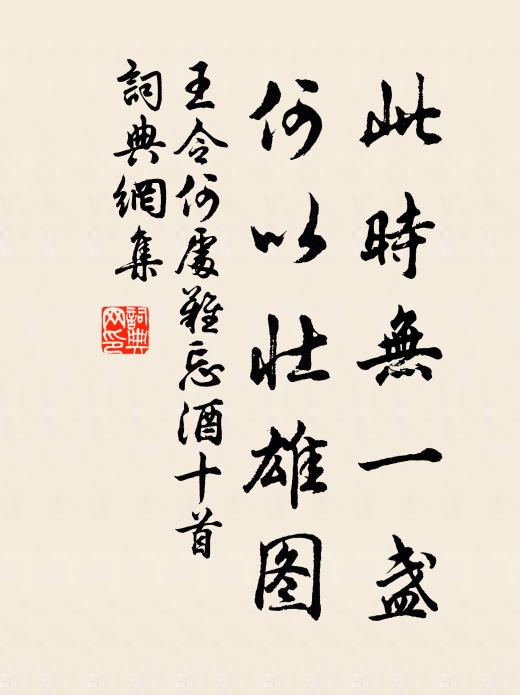 此時無一盞
何以壮雄图
王令何處難忘酒十首
詞典網集
詞典
网印